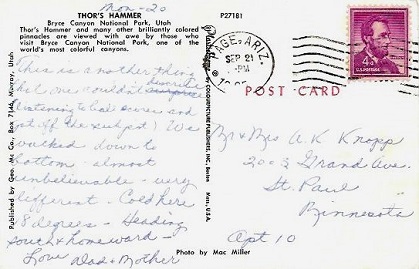 Mon - 20
THOR'S HAMMER
Bryce Canyon National Park, Utah
Thor's Hammer and many other brilliantly colored
pinnacles are viewed with awe by those who
visit Bryce Canyon National Park, one of the
world's most colorful canyons.
P27181
PAGE, ARIZ.
SEP 21
PM
4¢
U.S. POSTAGE
POST CARD
This is another thing
that one couldn't
listening to ball scores and
We
walked down to
bottom - almost
unbelievable - very
different - Cold here
28 degrees - Heading
south & homeward -
Love Dad & Mother
Mr & Mrs A. K. Knopp
2003 Grand Ave.
St. Paul
Minnesota
Apt 10
Published by Geo. Mc Co., Box 7156, Murray, Utah
by COLOURPICTURE PUBLISHERS, INC., Boston
Mass., U.S.A.
Photo by Mac Miller